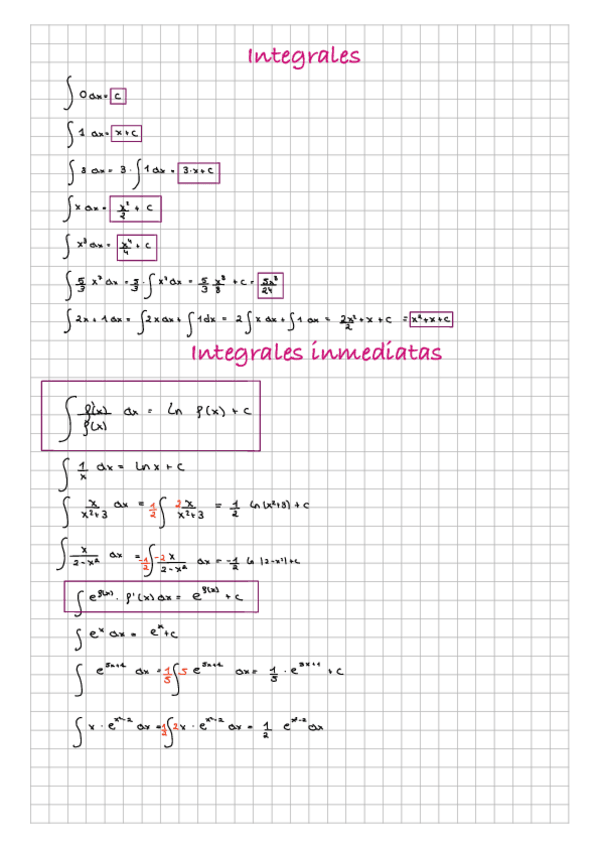 Integrales
∫ 0 dx = c
∫ 1 dx = x + c
∫ 3 dx = 3 · ∫ 1 dx = 3·x + c
∫ x dx = x²/2 + c
∫ x³ dx = x⁴/4 + c
∫ 5/3 x⁷ dx = 5/3 · ∫ x⁷ dx = 5/3 x⁸/8 + c = 5x⁸/24
∫ 2x + 1 dx = ∫ 2x dx + ∫ 1 dx = 2 ∫ x dx + ∫ 1 dx = 2x²/2 + x + c = x² + x + c
Integrales inmediatas
∫ f'(x)/f(x) dx = ln f(x) + c
∫ 1/x dx = ln x + c
∫ x/x²+3 dx = 1/2 ∫ 2x/x²+3 = 1/2 ln(x²+3) + c
∫ x/2-x² dx = -1/2 ∫ -2x/2-x² dx = -1/2 ln |2-x²| + c
∫ e^f(x) · f'(x) dx = e^f(x) + c
∫ eˣ dx = eˣ + c
∫ e^5x+1 dx = 1/5 ∫ 5 e^5x+1 dx = 1/5 · e^5x+1 + c
∫ x · e^x²-2 dx = 1/2 ∫ 2x · e^x²-2 dx = 1/2 e^x²-2 dx